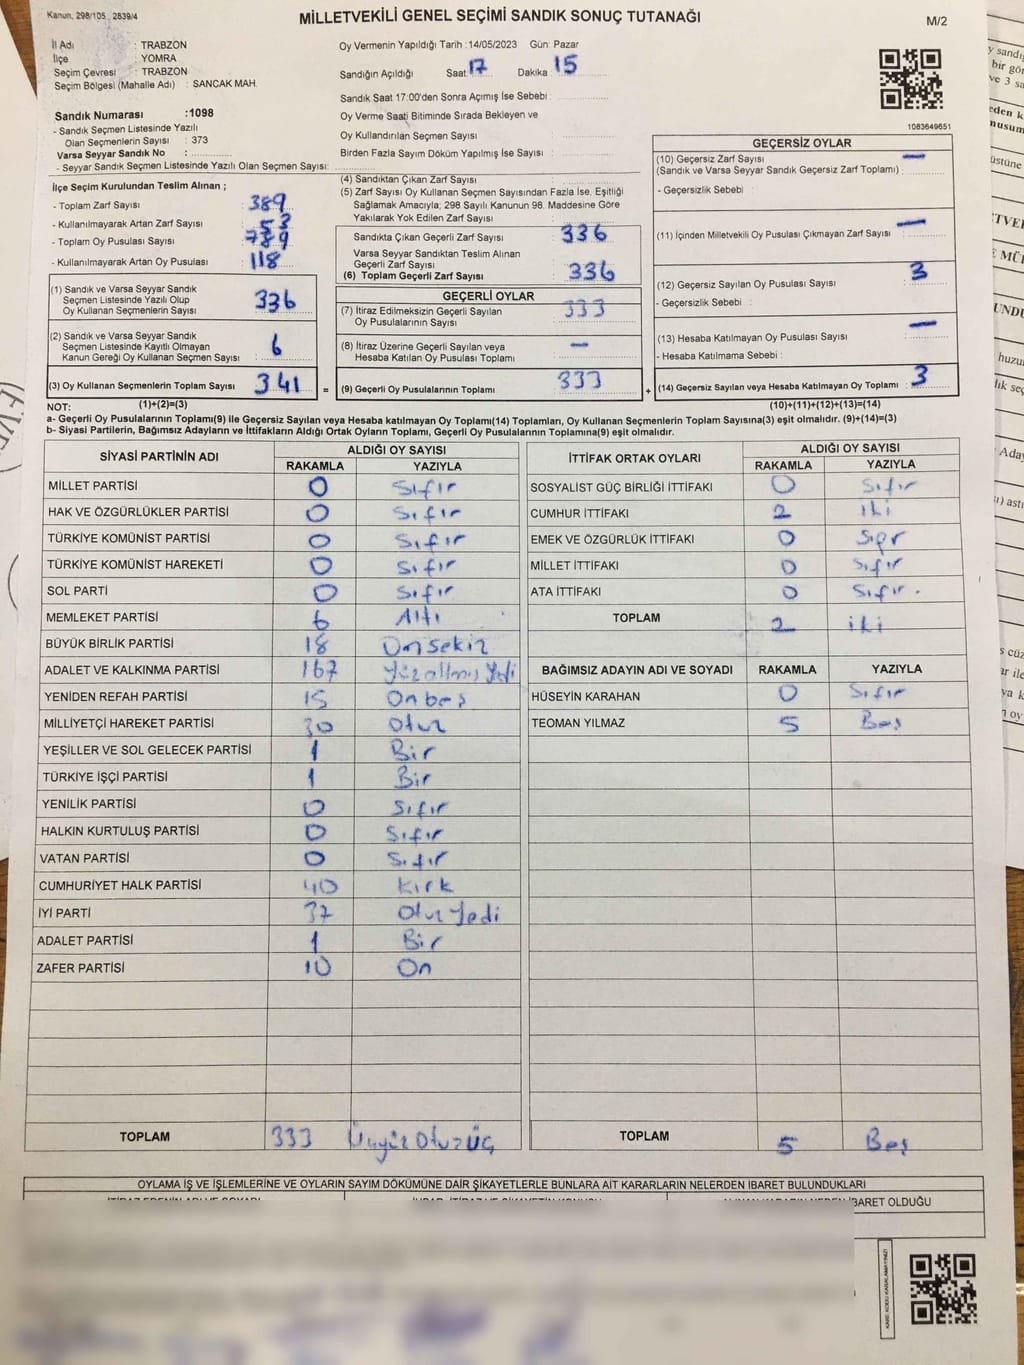 Kanun, 298/105, 2839/4
MİLLETVEKİLİ GENEL SEÇİMİ SANDIK SONUÇ TUTANAĞI
M/2
İl Adı : TRABZON
İlçe : YOMRA
Seçim Çevresi : TRABZON
Seçim Bölgesi (Mahalle Adı) : SANCAK MAH.
Oy Vermenin Yapıldığı Tarih :14/05/2023 Gün: Pazar
Sandığın Açıldığı Saat 17 Dakika 15
Sandık Saat 17:00'den Sonra Açımış İse Sebebi :
Oy Verme Saati Bitiminde Sırada Bekleyen ve
Oy Kullandırılan Seçmen Sayısı :
Birden Fazla Sayım Döküm Yapılmış İse Sayısı :
1083649651
Sandık Numarası :1098
- Sandık Seçmen Listesinde Yazılı
Olan Seçmenlerin Sayısı : 373
Varsa Seyyar Sandık No :
- Seyyar Sandık Seçmen Listesinde Yazılı Olan Seçmen Sayısı:
İlçe Seçim Kurulundan Teslim Alınan ;
- Toplam Zarf Sayısı : 389
- Kullanılmayarak Artan Zarf Sayısı : 53
- Toplam Oy Pusulası Sayısı
- Kullanılmayarak Artan Oy Pusulası : 118
(1) Sandık ve Varsa Seyyar Sandık
Seçmen Listesinde Yazılı Olup
Oy Kullanan Seçmenlerin Sayısı : 336
(2) Sandık ve Varsa Seyyar Sandık
Seçmen Listesinde Kayıtlı Olmayan
Kanun Gereği Oy Kullanan Seçmen Sayısı : 6
(3) Oy Kullanan Seçmenlerin Toplam Sayısı : 341
(1)+(2)=(3)
(4) Sandıktan Çıkan Zarf Sayısı :
(5) Zarf Sayısı Oy Kullanan Seçmen Sayısından Fazla İse, Eşitliği
Sağlamak Amacıyla; 298 Sayılı Kanunun 98. Maddesine Göre
Yakılarak Yok Edilen Zarf Sayısı :
Sandıkta Çıkan Geçerli Zarf Sayısı : 336
Varsa Seyyar Sandıktan Teslim Alınan
Geçerli Zarf Sayısı :
(6) Toplam Geçerli Zarf Sayısı : 336
GEÇERLİ OYLAR
(7) İtiraz Edilmeksizin Geçerli Sayılan
Oy Pusulalarının Sayısı : 333
(8) İtiraz Üzerine Geçerli Sayılan veya
Hesaba Katılan Oy Pusulası Toplamı : —
= (9) Geçerli Oy Pusulalarının Toplamı : 333
GEÇERSİZ OYLAR
(10) Geçersiz Zarf Sayısı —
(Sandık ve Varsa Seyyar Sandık Geçersiz Zarf Toplamı) :
- Geçersizlik Sebebi :
(11) İçinden Milletvekili Oy Pusulası Çıkmayan Zarf Sayısı : —
(12) Geçersiz Sayılan Oy Pusulası Sayısı : 3
- Geçersizlik Sebebi :
(13) Hesaba Katılmayan Oy Pusulası Sayısı : —
- Hesaba Katılmama Sebebi :
+ (14) Geçersiz Sayılan veya Hesaba Katılmayan Oy Toplamı : 3
(10)+(11)+(12)+(13)=(14)
NOT:
a- Geçerli Oy Pusulalarının Toplamı(9) ile Geçersiz Sayılan veya Hesaba katılmayan Oy Toplamı(14) Toplamları, Oy Kullanan Seçmenlerin Toplam Sayısına(3) eşit olmalıdır. (9)+(14)=(3)
b- Siyasi Partilerin, Bağımsız Adayların ve İttifakların Aldığı Ortak Oyların Toplamı, Geçerli Oy Pusulalarının Toplamına(9) eşit olmalıdır.
SİYASİ PARTİNİN ADI ALDIĞI OY SAYISI
RAKAMLA YAZIYLA
MİLLET PARTİSİ 0 Sıfır
HAK VE ÖZGÜRLÜKLER PARTİSİ 0 Sıfır
TÜRKİYE KOMÜNİST PARTİSİ 0 Sıfır
TÜRKİYE KOMÜNİST HAREKETİ 0 Sıfır
SOL PARTİ 0 Sıfır
MEMLEKET PARTİSİ 6 Altı
BÜYÜK BİRLİK PARTİSİ 18 Onsekiz
ADALET VE KALKINMA PARTİSİ 167 Yüzaltmış Yedi
YENİDEN REFAH PARTİSİ 15 Onbeş
MİLLİYETÇİ HAREKET PARTİSİ 30 Otuz
YEŞİLLER VE SOL GELECEK PARTİSİ 1 Bir
TÜRKİYE İŞÇİ PARTİSİ 1 Bir
YENİLİK PARTİSİ 0 Sıfır
HALKIN KURTULUŞ PARTİSİ 0 Sıfır
VATAN PARTİSİ 0 Sıfır
CUMHURİYET HALK PARTİSİ 40 Kırk
İYİ PARTİ 37 Otuz Yedi
ADALET PARTİSİ 1 Bir
ZAFER PARTİSİ 10 On
TOPLAM 333 Üçyüz Otuzüç
İTTİFAK ORTAK OYLARI ALDIĞI OY SAYISI
RAKAMLA YAZIYLA
SOSYALİST GÜÇ BİRLİĞİ İTTİFAKI 0 Sıfır
CUMHUR İTTİFAKI 2 iki
EMEK VE ÖZGÜRLÜK İTTİFAKI 0 Sıfır
MİLLET İTTİFAKI 0 Sıfır
ATA İTTİFAKI 0 Sıfır.
TOPLAM 2 iki
BAĞIMSIZ ADAYIN ADI VE SOYADI RAKAMLA YAZIYLA
HÜSEYİN KARAHAN 0 Sıfır
TEOMAN YILMAZ 5 Beş
TOPLAM 5 Beş
OYLAMA İŞ VE İŞLEMLERİNE VE OYLARIN SAYIM DÖKÜMÜNE DAİR ŞİKAYETLERLE BUNLARA AİT KARARLARIN NELERDEN İBARET BULUNDUKLARI
İBARET OLDUĞU